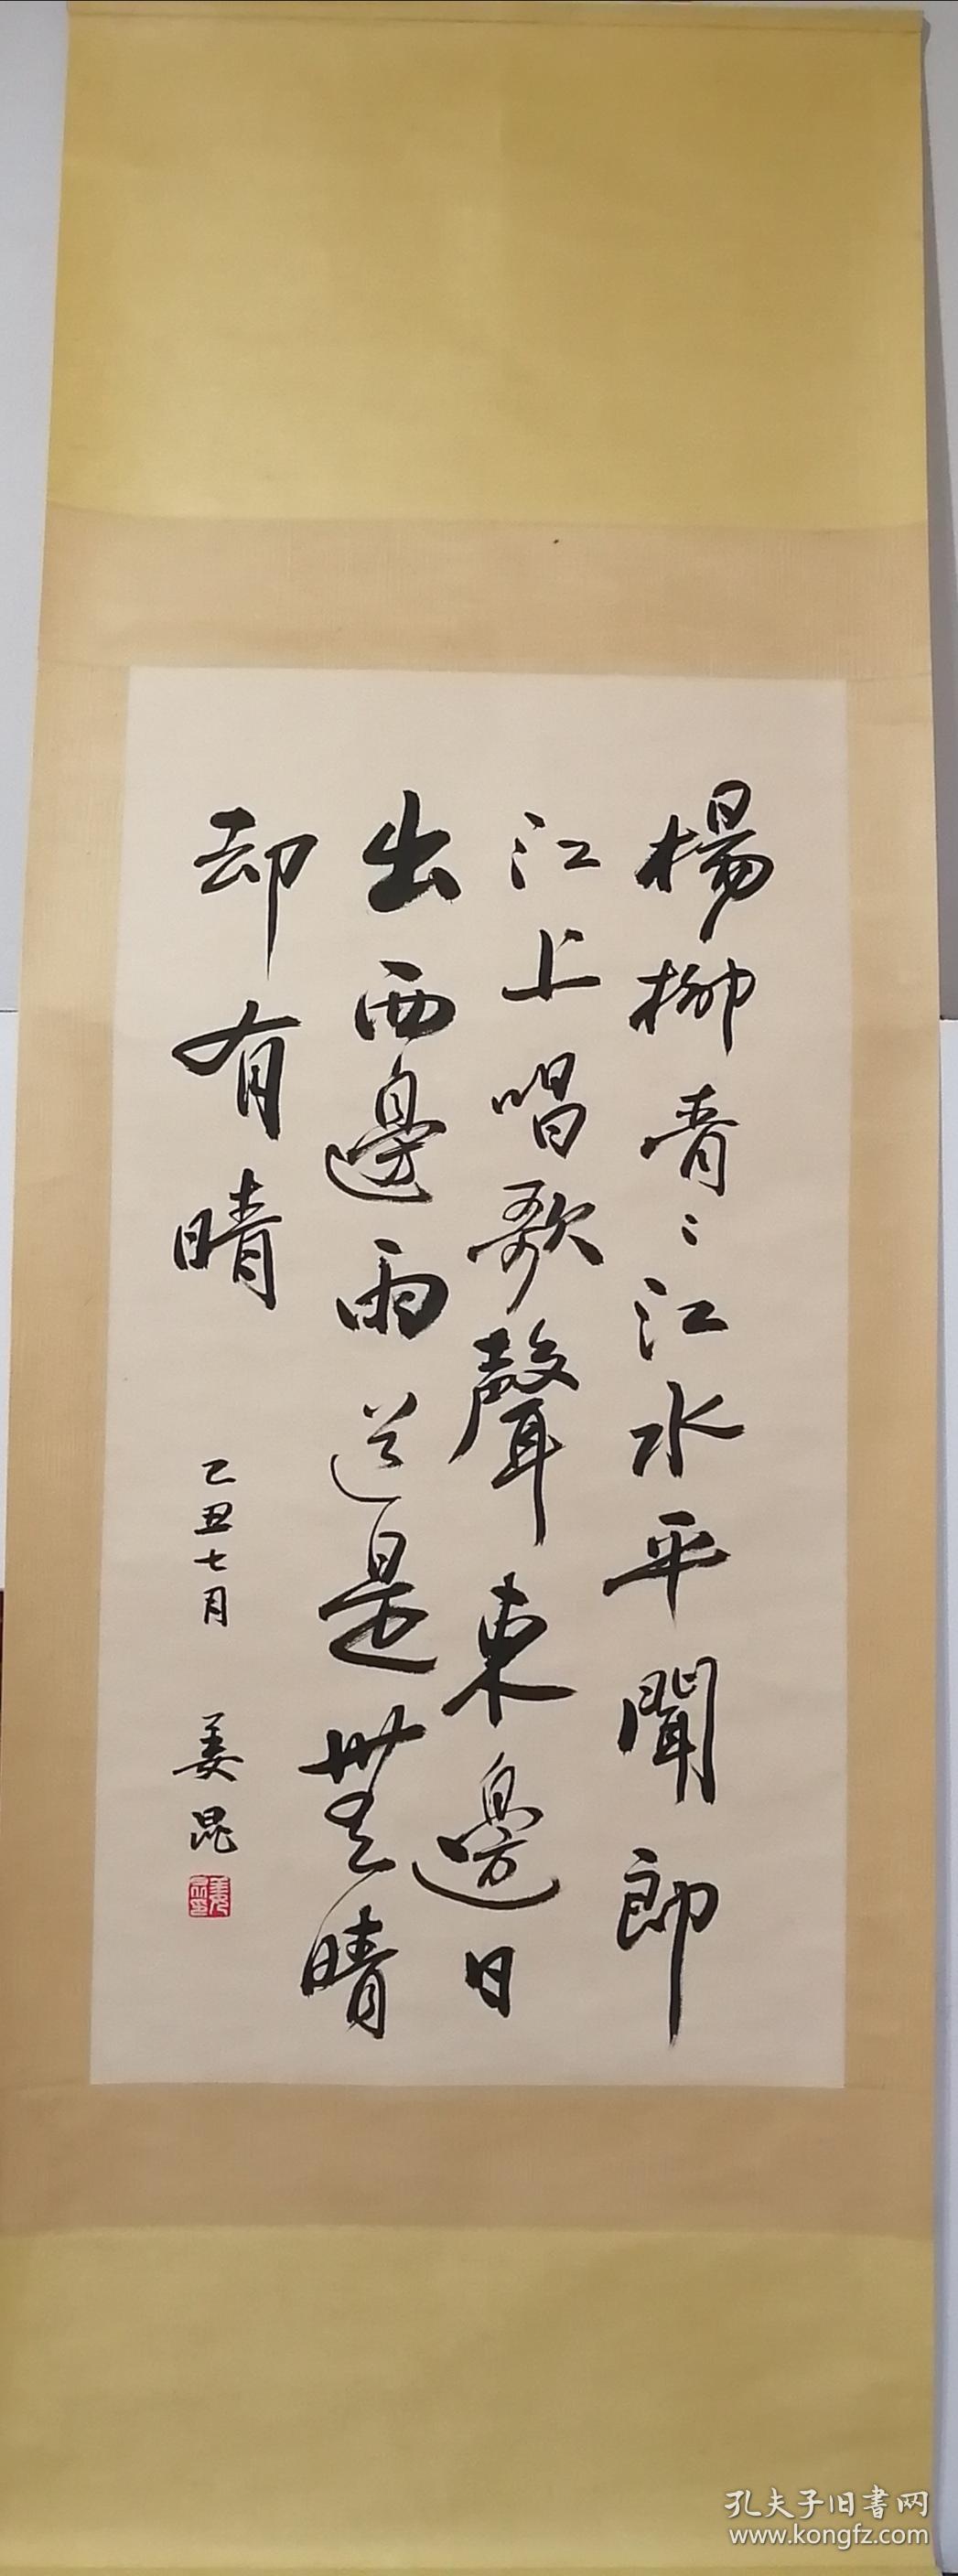 楊柳青〻江水平聞郎
江上唱歌聲東邊日
出西邊雨道是無晴
却有晴
己丑七月 姜昆
孔夫子旧书网
www.kongfz.com